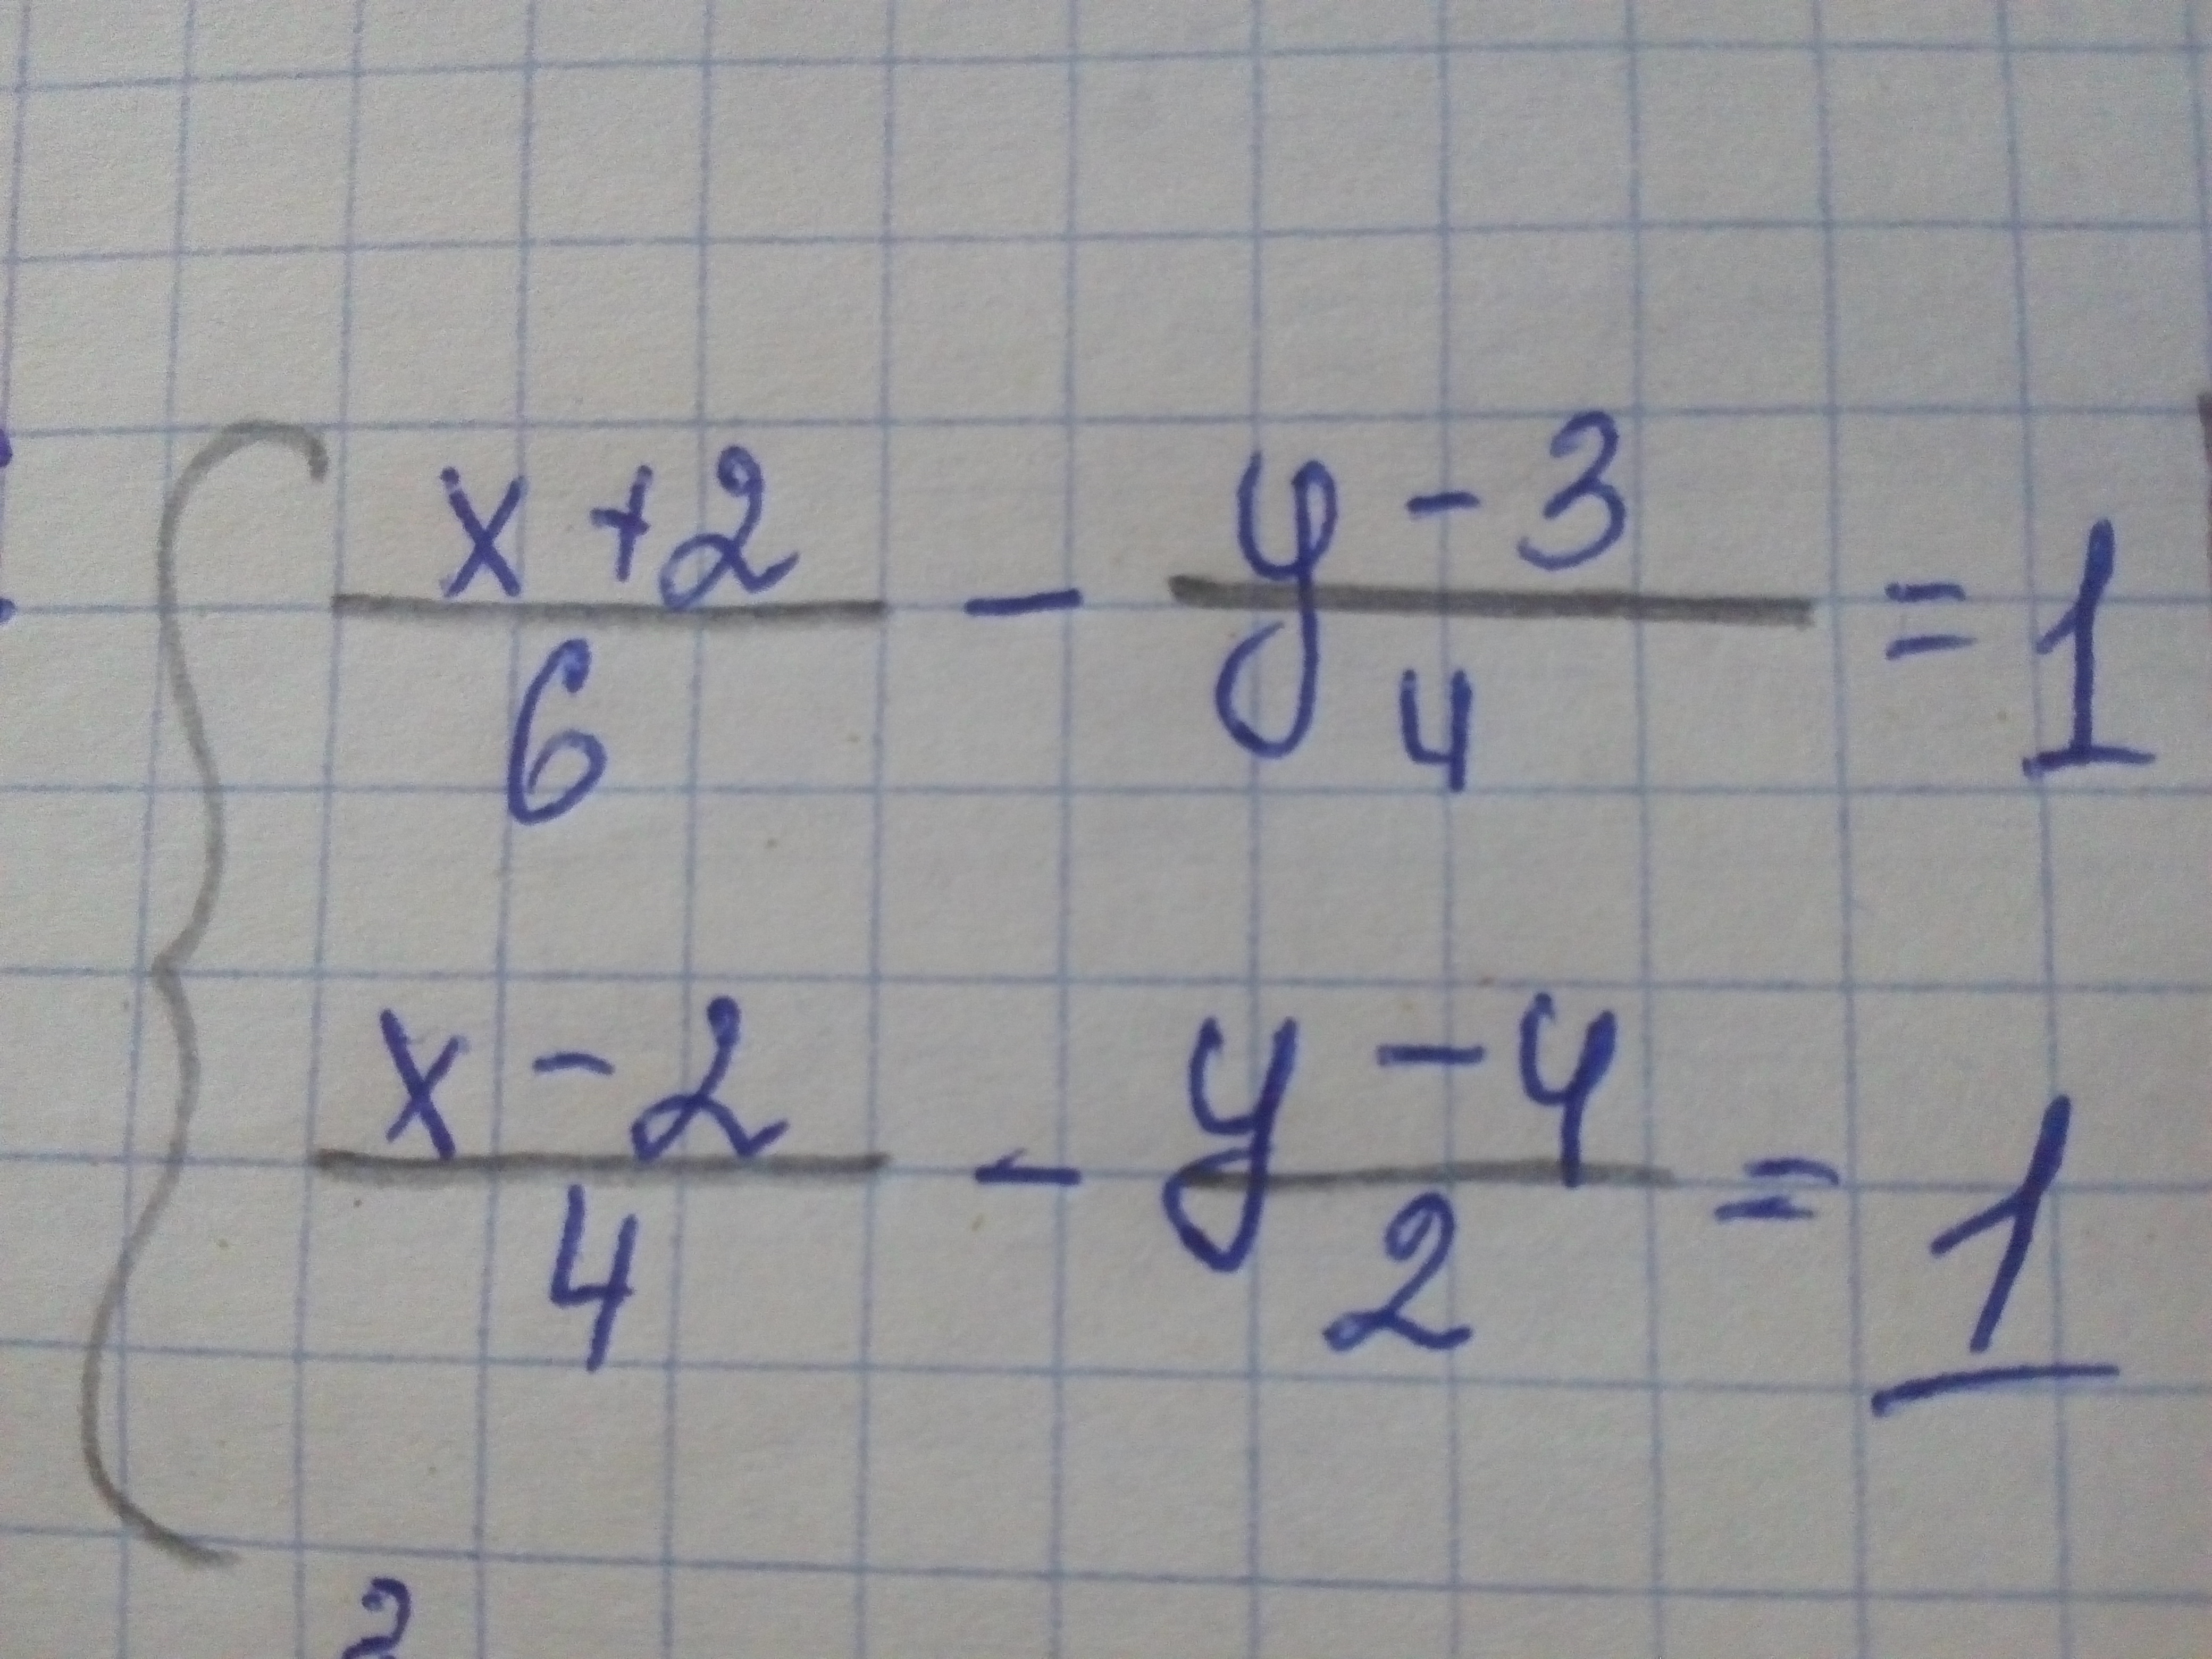 x+2/6 - y-3/4 = 1
x-2/4 - y-4/2 = 1
2